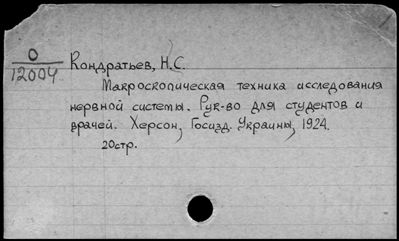 О
12004
Кондратьев, Н.С.
Макроскопическая техника исследования
нервной системы. Рук-во для студентов и
врачей. Херсон, Госизд. Украины, 1924.
20стр.